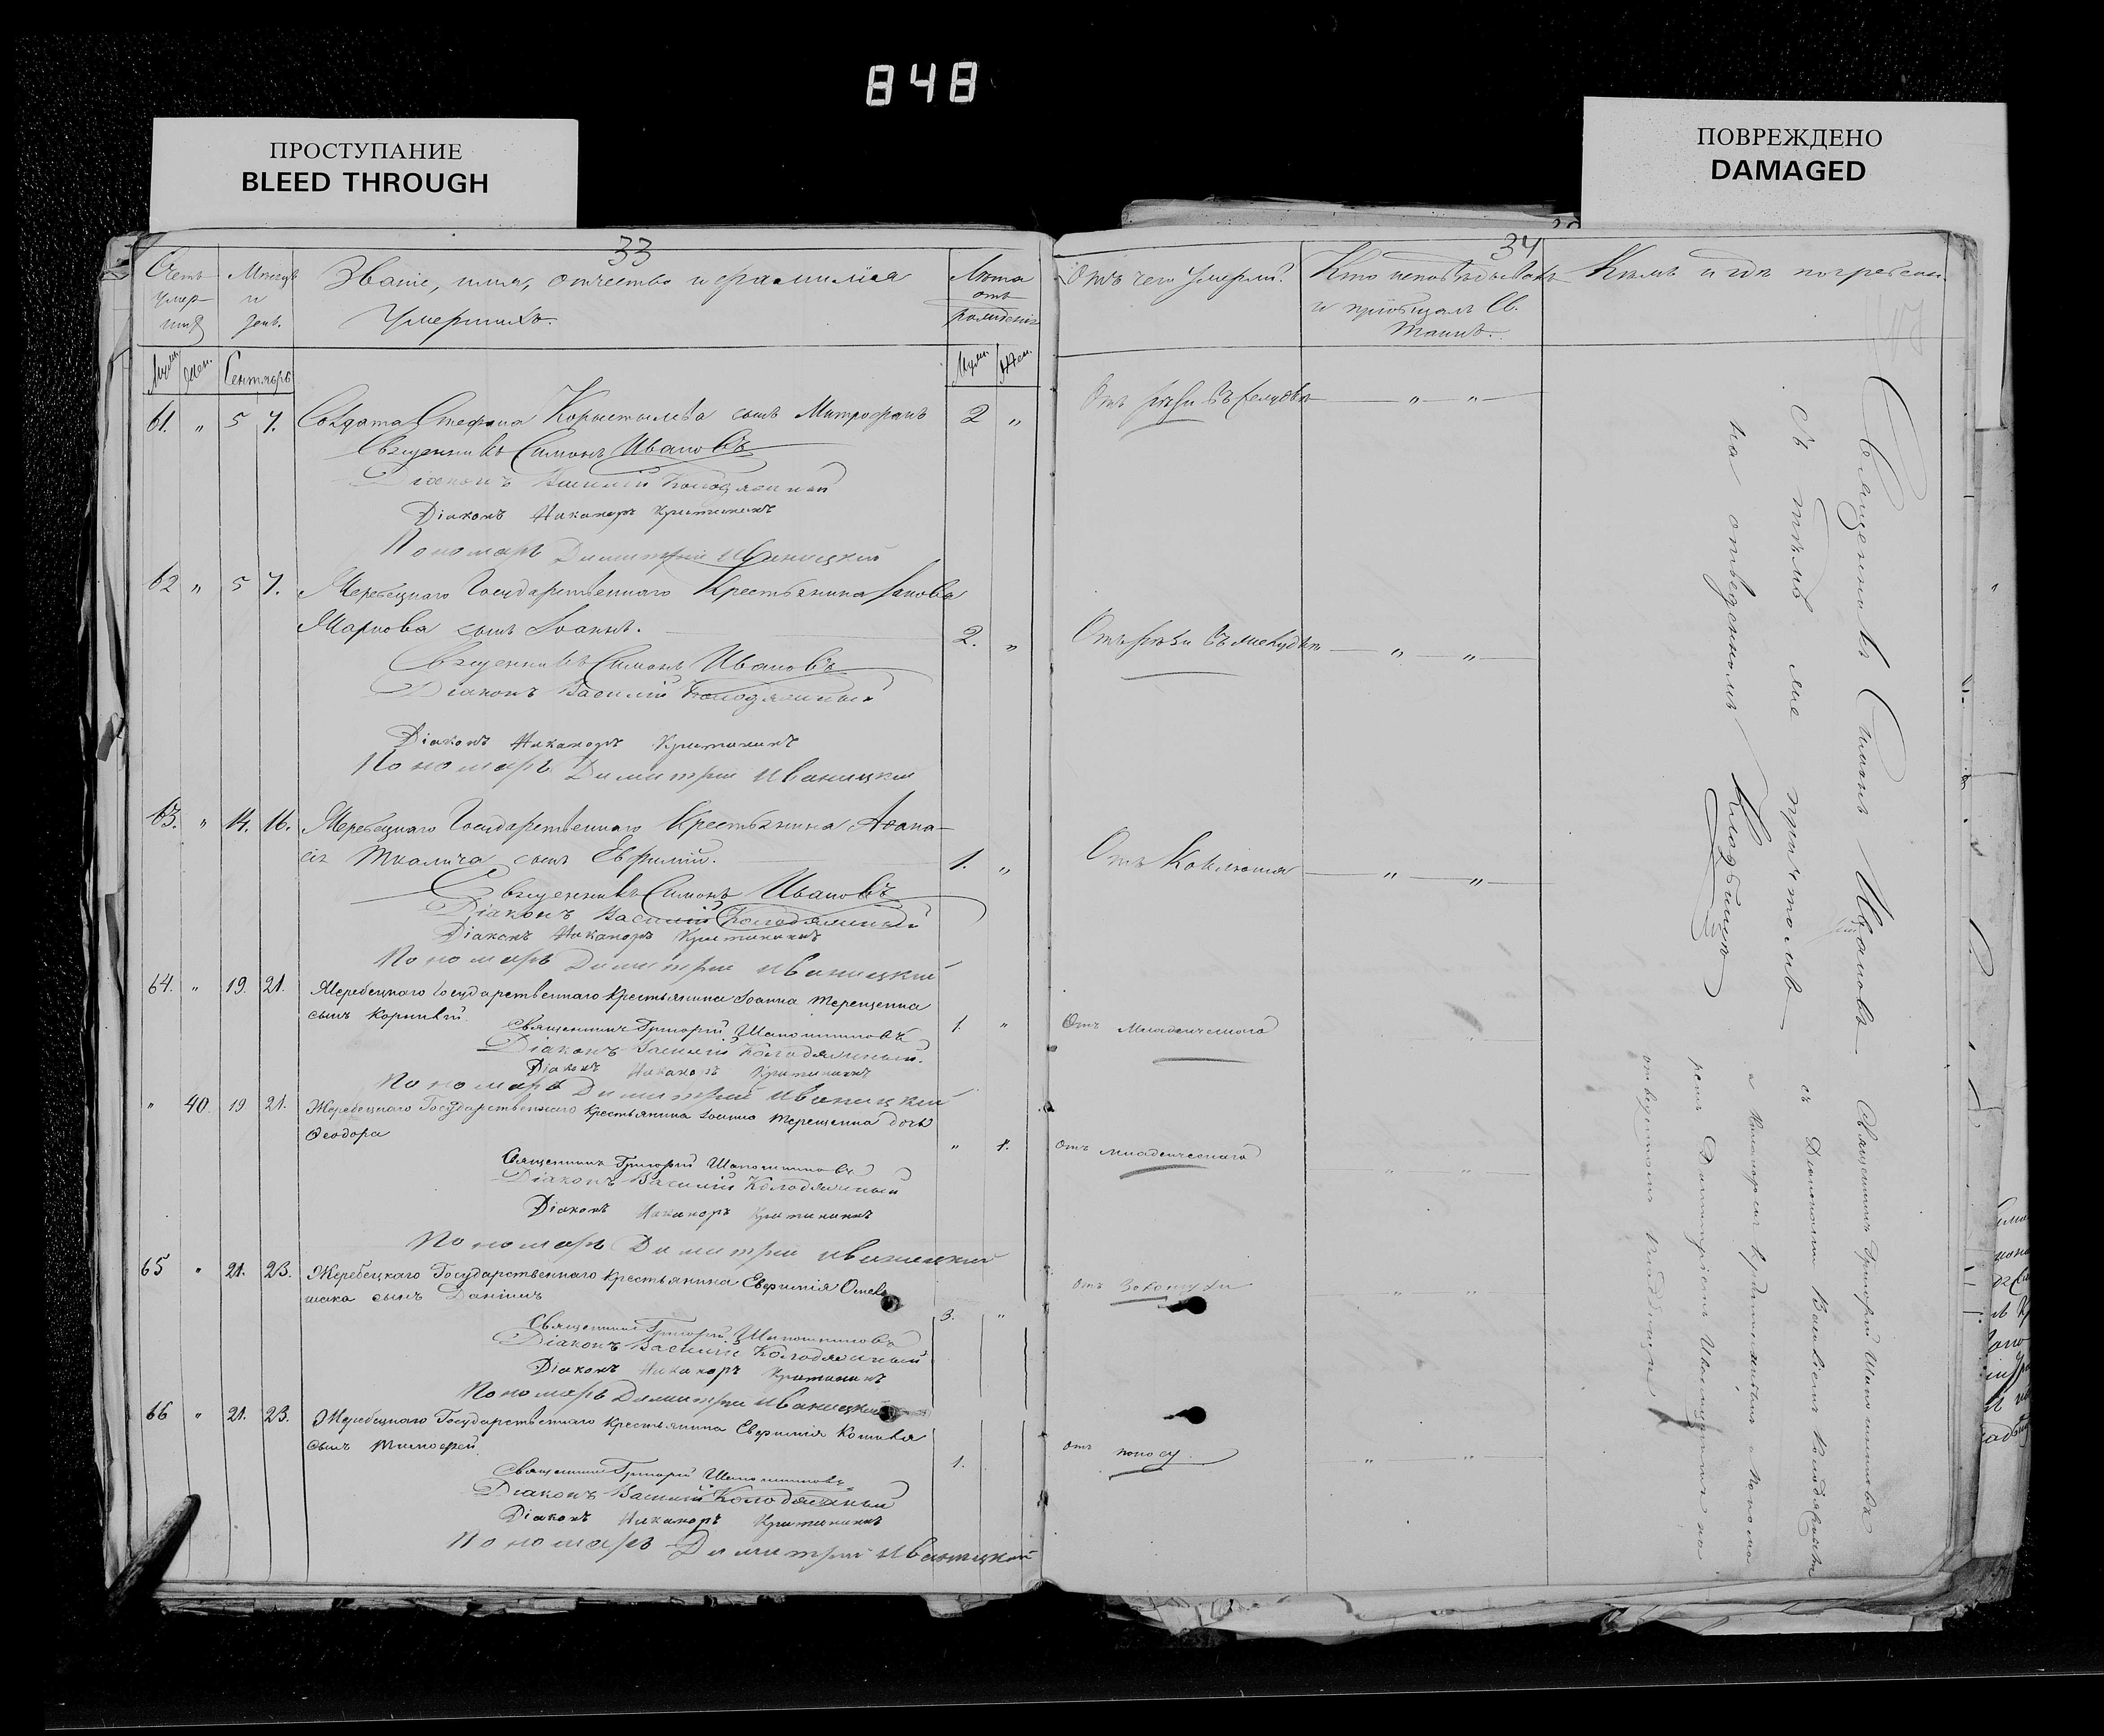 848
ПРОСТУПАНИЕ
BLEED THROUGH
ПОВРЕЖДЕНО
DAMAGED
33
Счетъ умер- шихъ
Мѣсяцъ и день.
Званіе, имя, отчество и фамилія
Умершихъ.
Лѣта отъ рожденія
Муж. Жен. Сентябрь
Муж. Жен.
61. " 5 7. Солдата Стефана Коростылева сынъ Митрофанъ 2 "
Священникъ Симонъ Ивановъ
Діаконъ Василій Колодяжный
Діаконъ Никаноръ
Пономарь Димитрій Иваницкій
62 " 5 7. Жеребецкаго Государственнаго Крестьянина Іакова
Маркова сынъ Іоаннъ. 2. "
Священникъ Симонъ Ивановъ
Діаконъ Василій Колодяжный
Діаконъ Никаноръ
Пономарь Димитрій Иваницкій
63. " 14. 16. Жеребецкаго Государственнаго Крестьянина Аѳана-
сія Ткалича сынъ Евфимій. 1. "
Священникъ Симонъ Ивановъ
Діаконъ Василій Колодяжный
Діаконъ Никаноръ
Пономарь Димитрій Иваницкій
64. " 19. 21. Жеребецкаго Государственнаго Крестьянина Іоанна Терещенка
сынъ Корнилій. 1. "
Священникъ Григорій Шапошниковъ
Діаконъ Василій Колодяжный.
Діаконъ Никаноръ
Пономарь Димитрій Иваницкій
" 40. 19 21. Жеребецкаго Государственнаго Крестьянина Іоанна Терещенка дочь
Ѳеодора " 1.
Священникъ Григорій Шапошниковъ
Діаконъ Василій Колодяжный
Діаконъ Никаноръ
Пономарь Димитрій Иваницкій
65 " 21. 23. Жеребецкаго Государственнаго Крестьянина Евфимія
сынъ Даніилъ 3. "
Священникъ Григорій Шапошниковъ
Діаконъ Василій Колодяжный
Діаконъ Никаноръ
Пономарь Димитрій Иваницкій
66 " 21. 23. Жеребецкаго Государственнаго Крестьянина Евфимія
сынъ Тимофей. 1.
Священникъ Григорій Шапошниковъ
Діаконъ Василій Колодяжный
Діаконъ Никаноръ
Пономарь Димитрій Иваницкій
34
Отъ чего умерли.
Кто исповѣдывалъ
и пріобщалъ Св.
Таинъ.
Кѣмъ и гдѣ погребены
Отъ рѣзи въ желудкѣ " "
Отъ рѣзи въ желудкѣ " "
Отъ Коклюша " "
Отъ Младенческаго
Отъ младенческаго " "
Отъ " "
Отъ поносу. " "
Священникъ Симонъ Ивановъ
Съ тѣмъ же причтомъ
на отведенномъ Кладбищѣ
Священникъ Григорій Шапошниковъ
съ Діакономъ Василіемъ Колодяжнымъ
и Никаноромъ и Понома-
ремъ Димитріемъ Иваницкимъ на
отведенномъ кладбищѣ